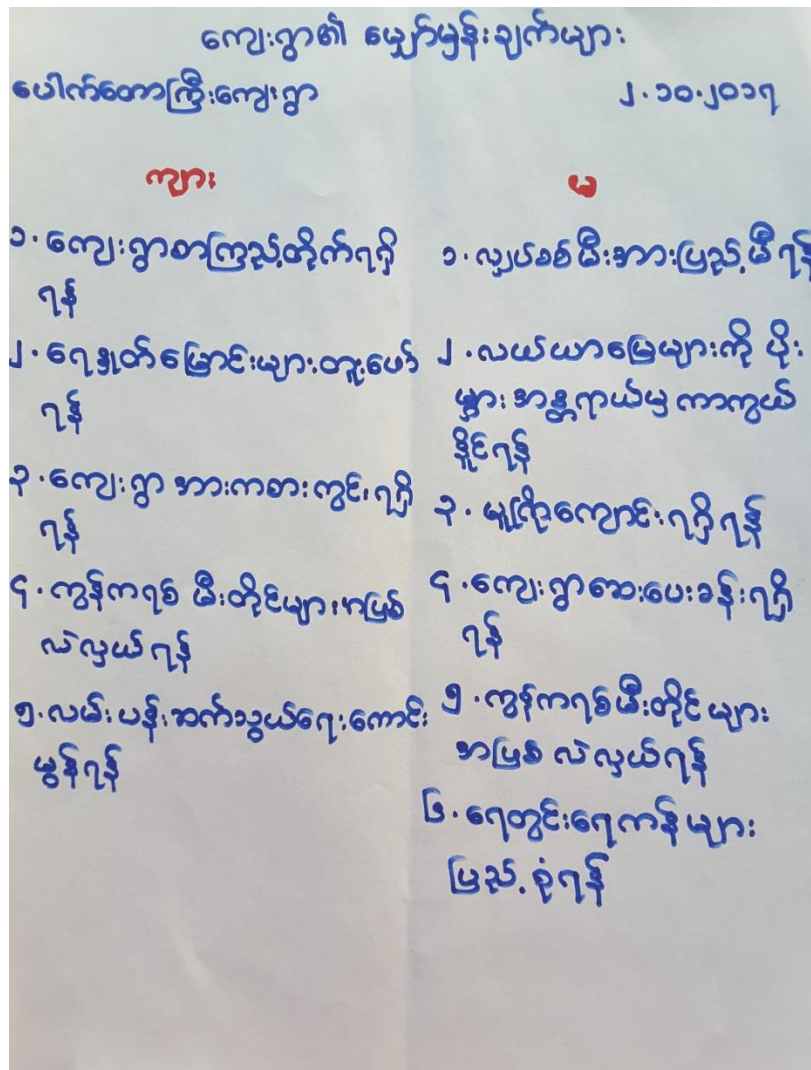 ကျေးရွာ၏ မျှော်မှန်းချက်များ
ပေါက်တောကြီးကျေးရွာ
၂.၁၀.၂၀၁၇
ကျား
၁.ကျေးရွာစာကြည့်တိုက်ရရှိ
ရန်
၂.ရေနုတ်မြောင်းများတူးဖော်
ရန်
၃.ကျေးရွာ အားကစားကွင်းရရှိ
ရန်
၄.ကွန်ကရစ် မီးတိုင်များအဖြစ်
လဲလှယ်ရန်
၅.လမ်းပန်းဆက်သွယ်ရေးကောင်း
မွန်ရန်
မ
၁.လျှပ်စစ်မီးအားပြည့်မီရန်
၂.လယ်ယာမြေများကို ပိုး
မွှား အန္တရာယ်မှ ကာကွယ်
နိုင်ရန်
၃.မူကြိုကျောင်းရရှိရန်
၄.ကျေးရွာဆေးပေးခန်းရရှိ
ရန်
၅.ကွန်ကရစ်မီးတိုင်များ
အဖြစ် လဲလှယ်ရန်
၆.ရေတွင်းရေကန်များ
ပြည့်စုံရန်